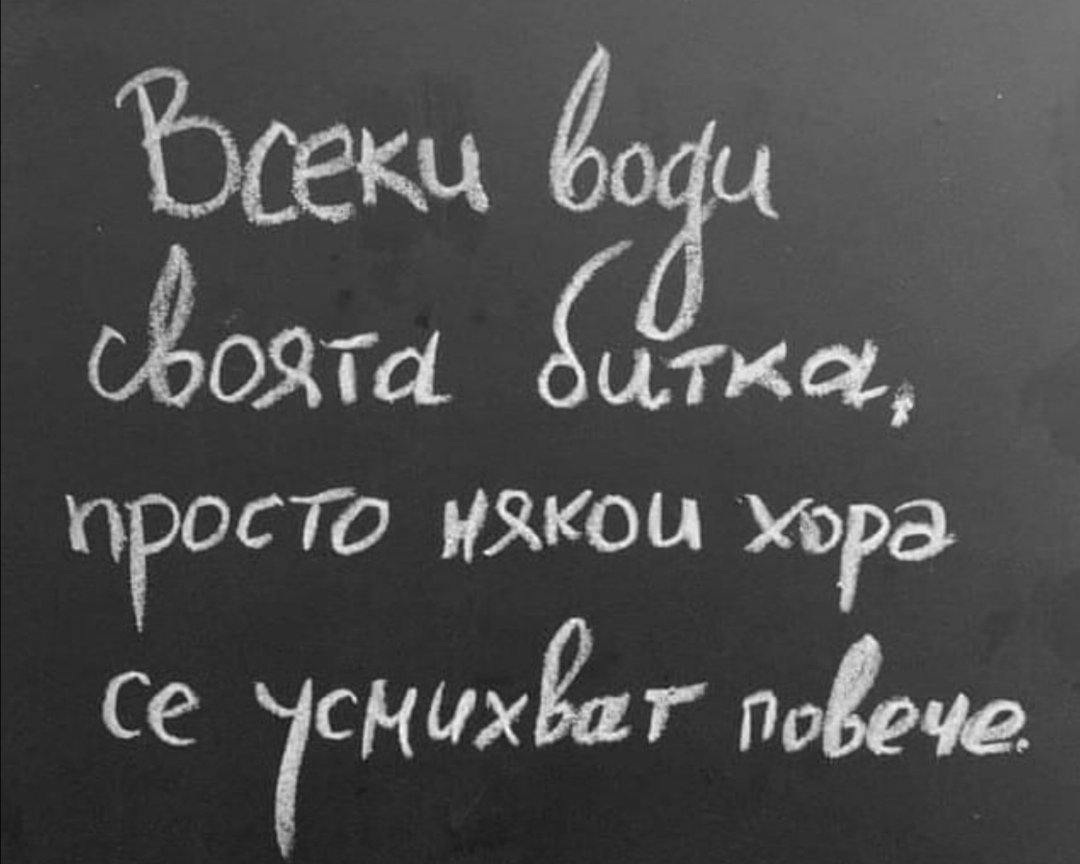 Всеки води
своята битка,
просто някои хора
се усмихват повече.